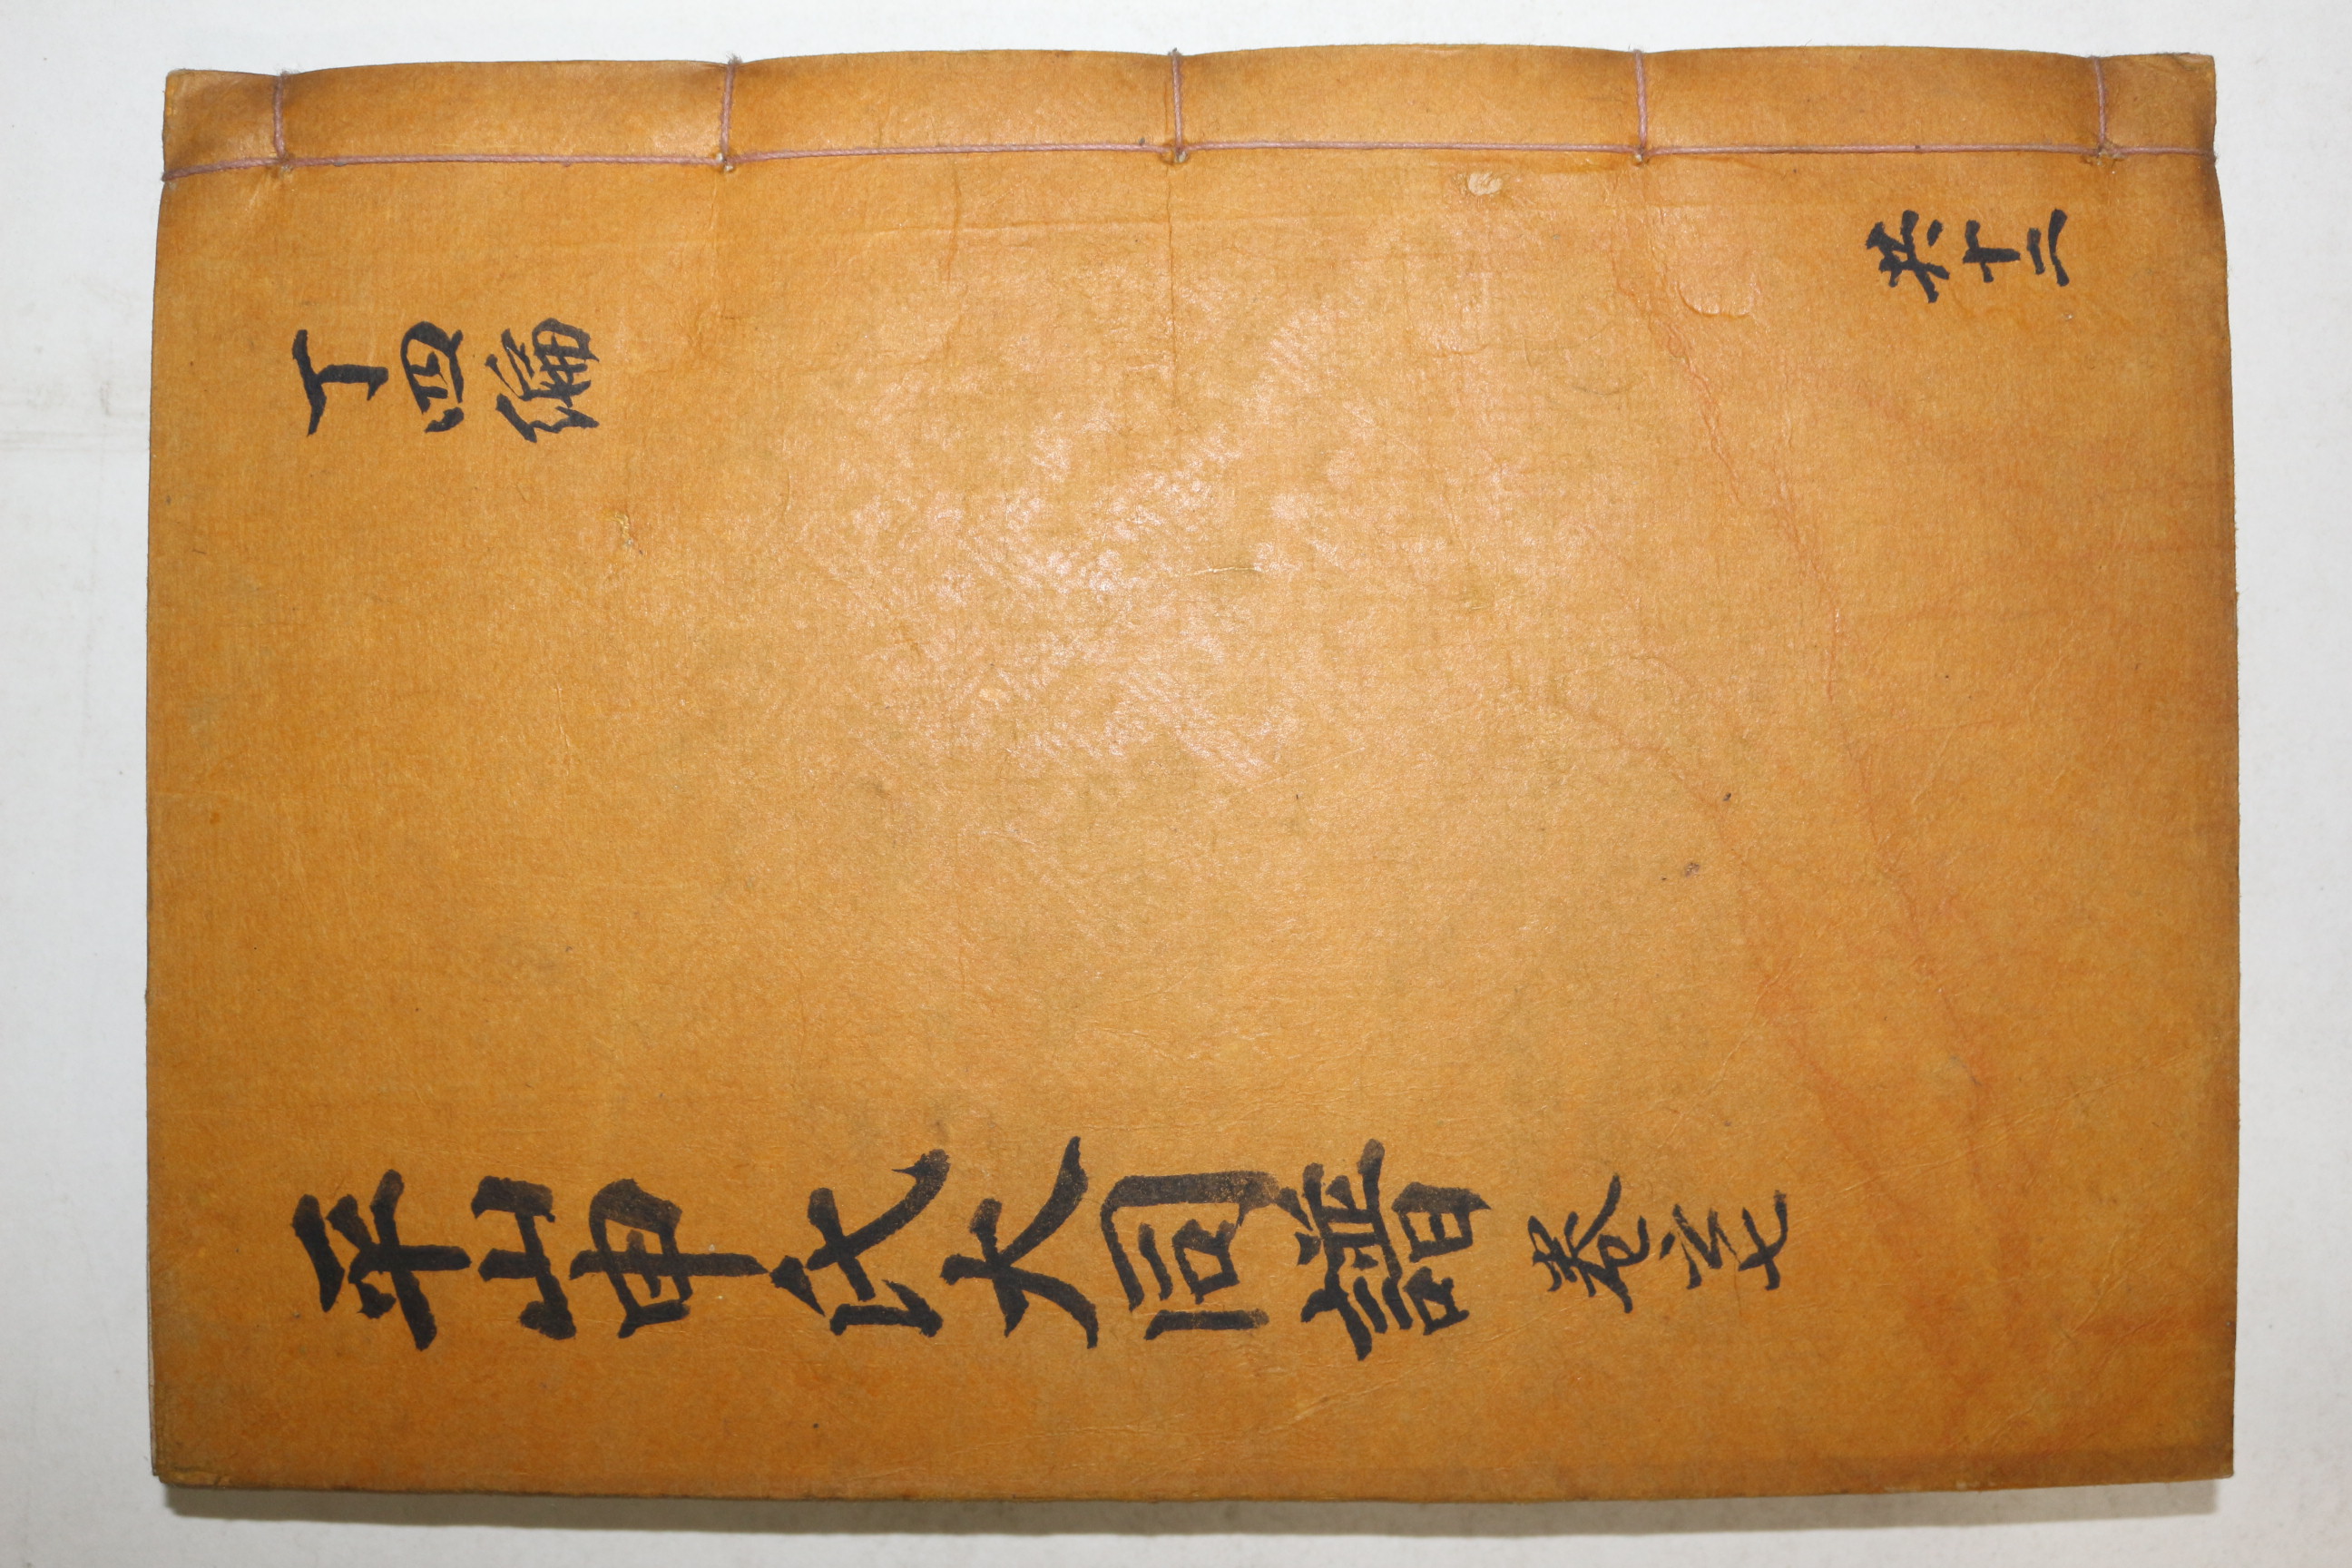 丁四編
共十二
平山申氏大同譜 卷之七